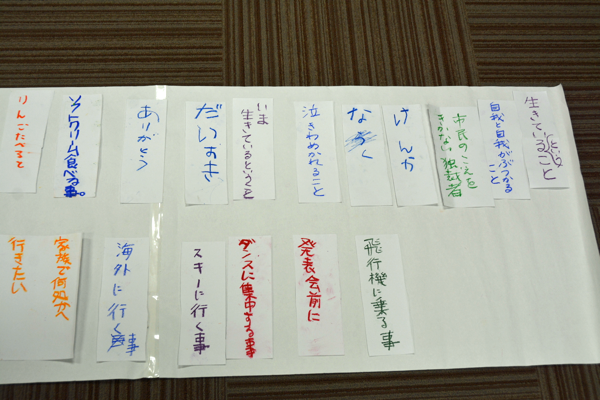 生きていること
自我と自我がぶつかる
こと
市民のこえを
きかない独裁者
けんか
なく
泣きわめかれること
いま
生きているということ
だいすき
ありがとう
ソフトクリーム食べる事。
りんごたべると
飛行機に乗る事
発表会前に
ダンスに集中する事
スキーに行く事
海外に行く事
家族で何処かへ
行きたい